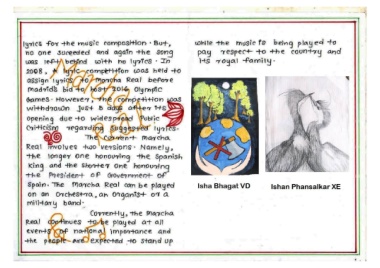 lyrics for the music composition. But,
no one succeeded and again the song
was left behind with no lyrics. In
2008, A lyric competition was held to
assign lyrics to Marcha Real before
Madrid's bid to host 2016 Olympic
Games. However, the competition was
withdrawn just 5 days after its
opening due to widespread Public
Criticism regarding suggested lyrics.
The current Marcha
Real involves two versions. Namely,
the longer one honouring the Spanish
King and the shorter one honouring
the President of Government of
Spain. The Marcha Real can be played
on an Orchestra, an Organist or a
military band.
Currently, the Marcha
Real continues to be played at all
events of national importance and
the people are expected to stand up
while the music is being played to
pay respect to the country and
its royal family.
Isha Bhagat VD
Ishan Phansalkar XE